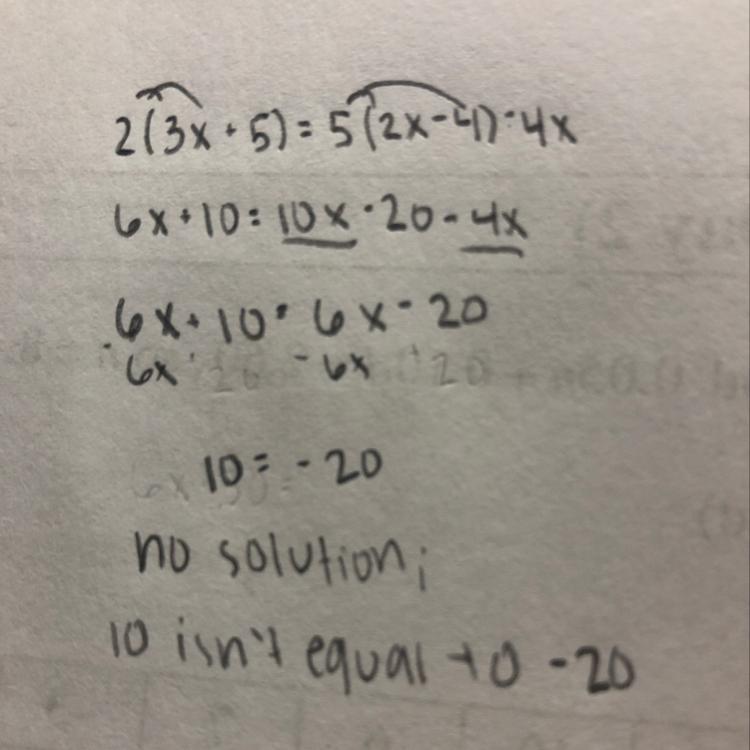 2(3x + 5) = 5(2x - 4) - 4x
6x + 10 = 10x - 20 - 4x
6x + 10 = 6x - 20
- 6x - 6x
10 = - 20
no solution;
10 isn't equal to -20